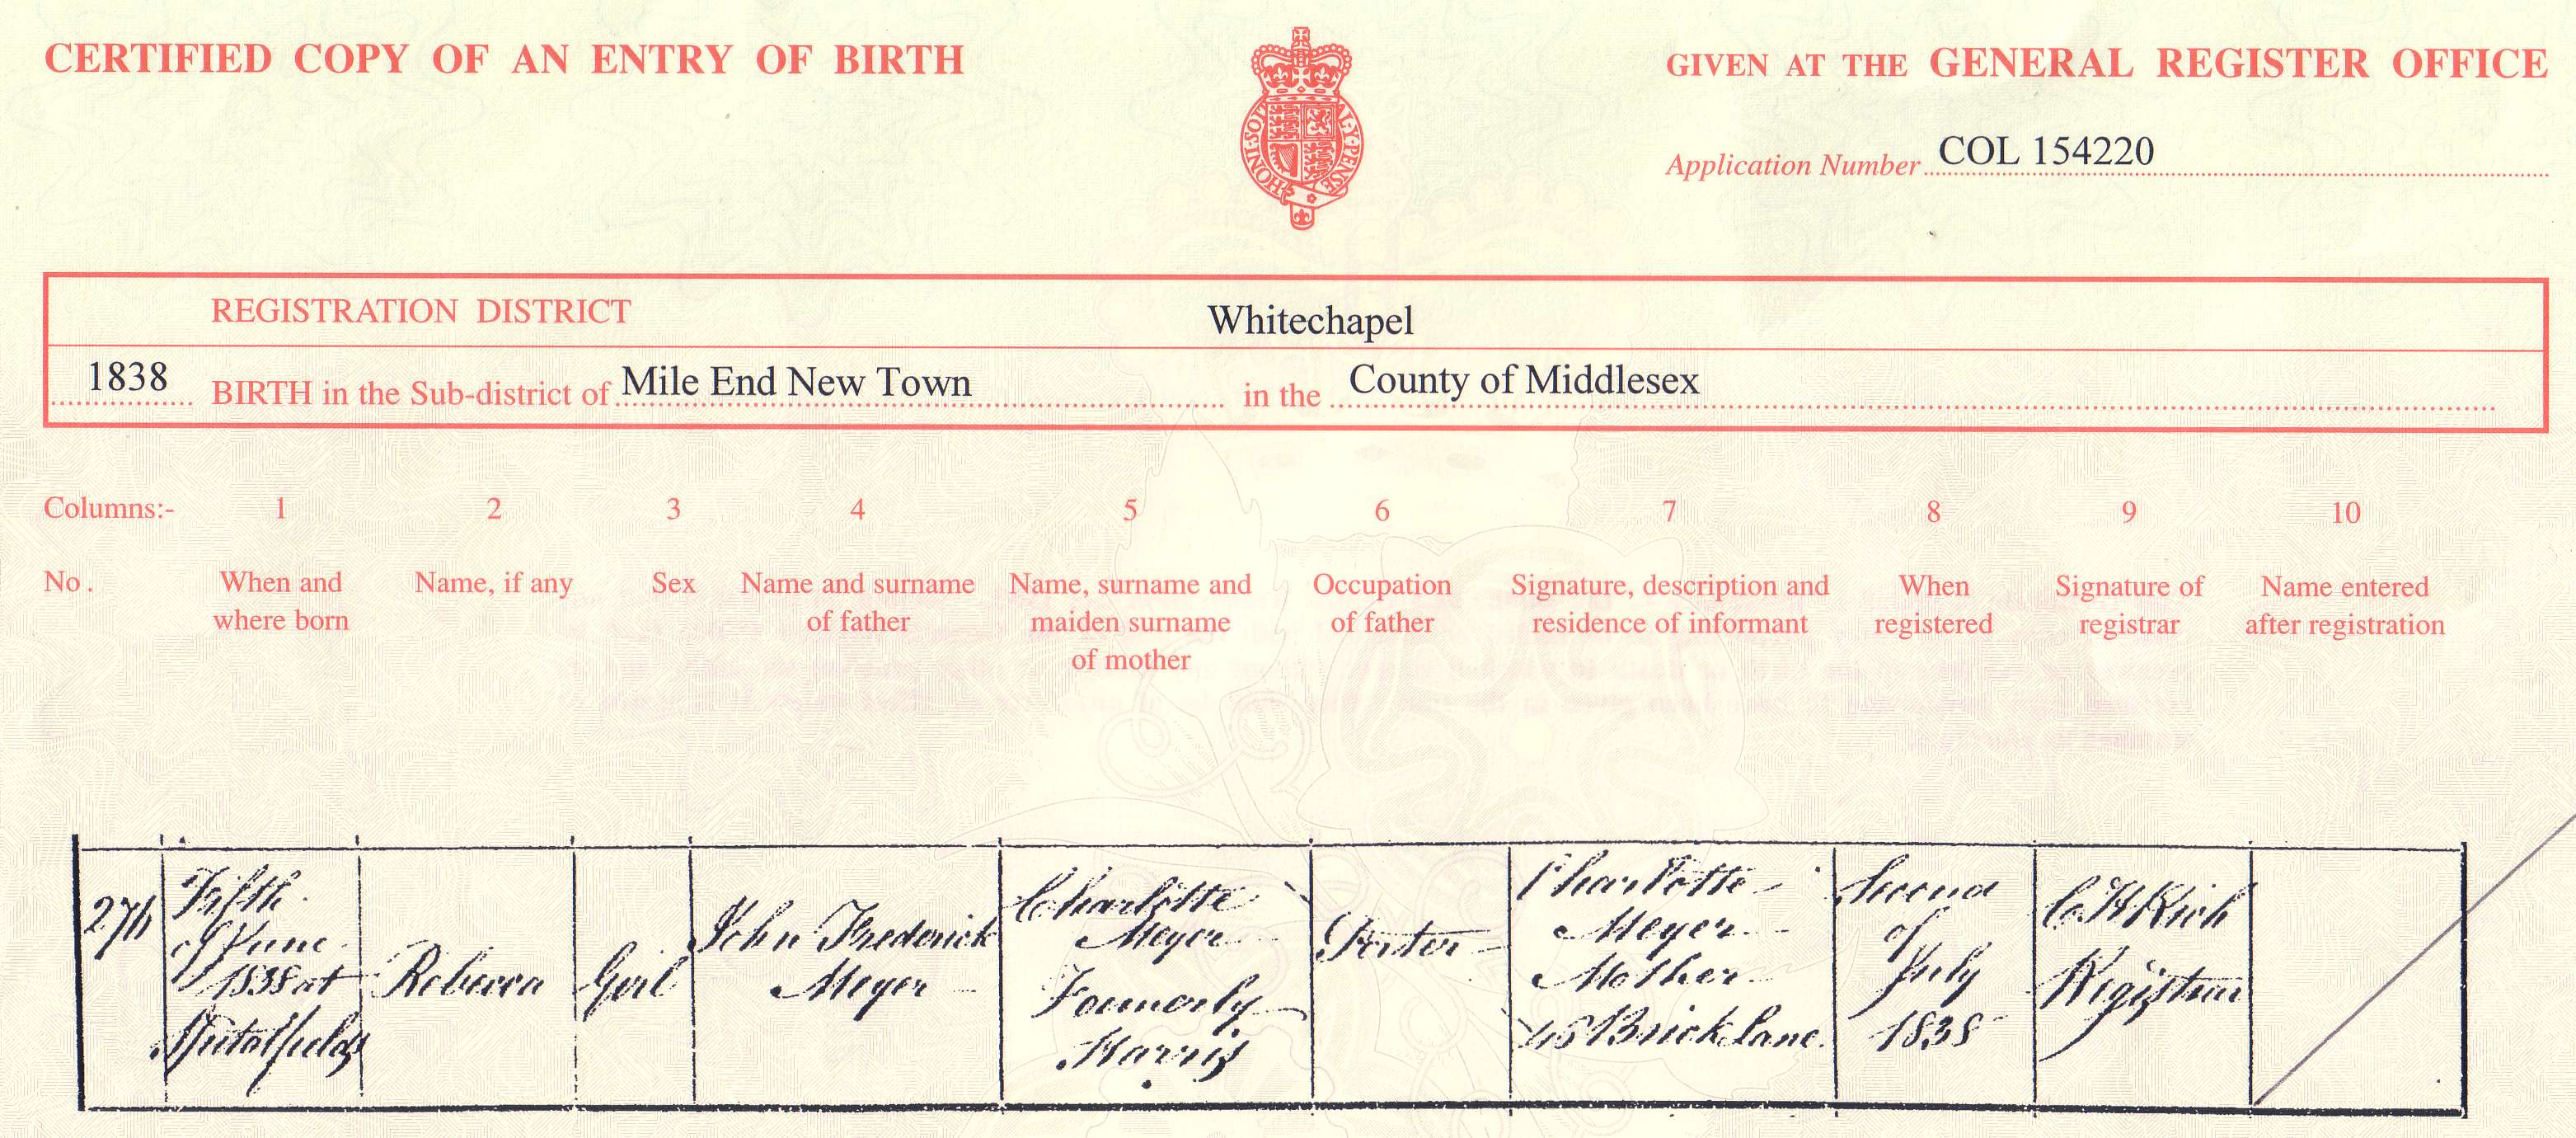 CERTIFIED COPY OF AN ENTRY OF BIRTH
GIVEN AT THE GENERAL REGISTER OFFICE
HONI·SOIT
MAL·Y·PENSE
Application Number COL 154220
REGISTRATION DISTRICT Whitechapel
1838 BIRTH in the Sub-district of Mile End New Town in the County of Middlesex
Columns:- 1 2 3 4 5 6 7 8 9 10
No. When and where born
Name, if any
Sex
Name and surname
of father
Name, surname and
maiden surname
of mother
Occupation
of father
Signature, description and
residence of informant
When
registered
Signature of
registrar
Name entered
after registration
276
Fifth
of June
1838 at
Spitalfields
Rebecca
Girl
John Frederick
Meyer
Charlotte
Meyer
Formerly
Harris
Porter
Charlotte
Meyer
Mother
Brick Lane
Second
of
July
1838
Registrar